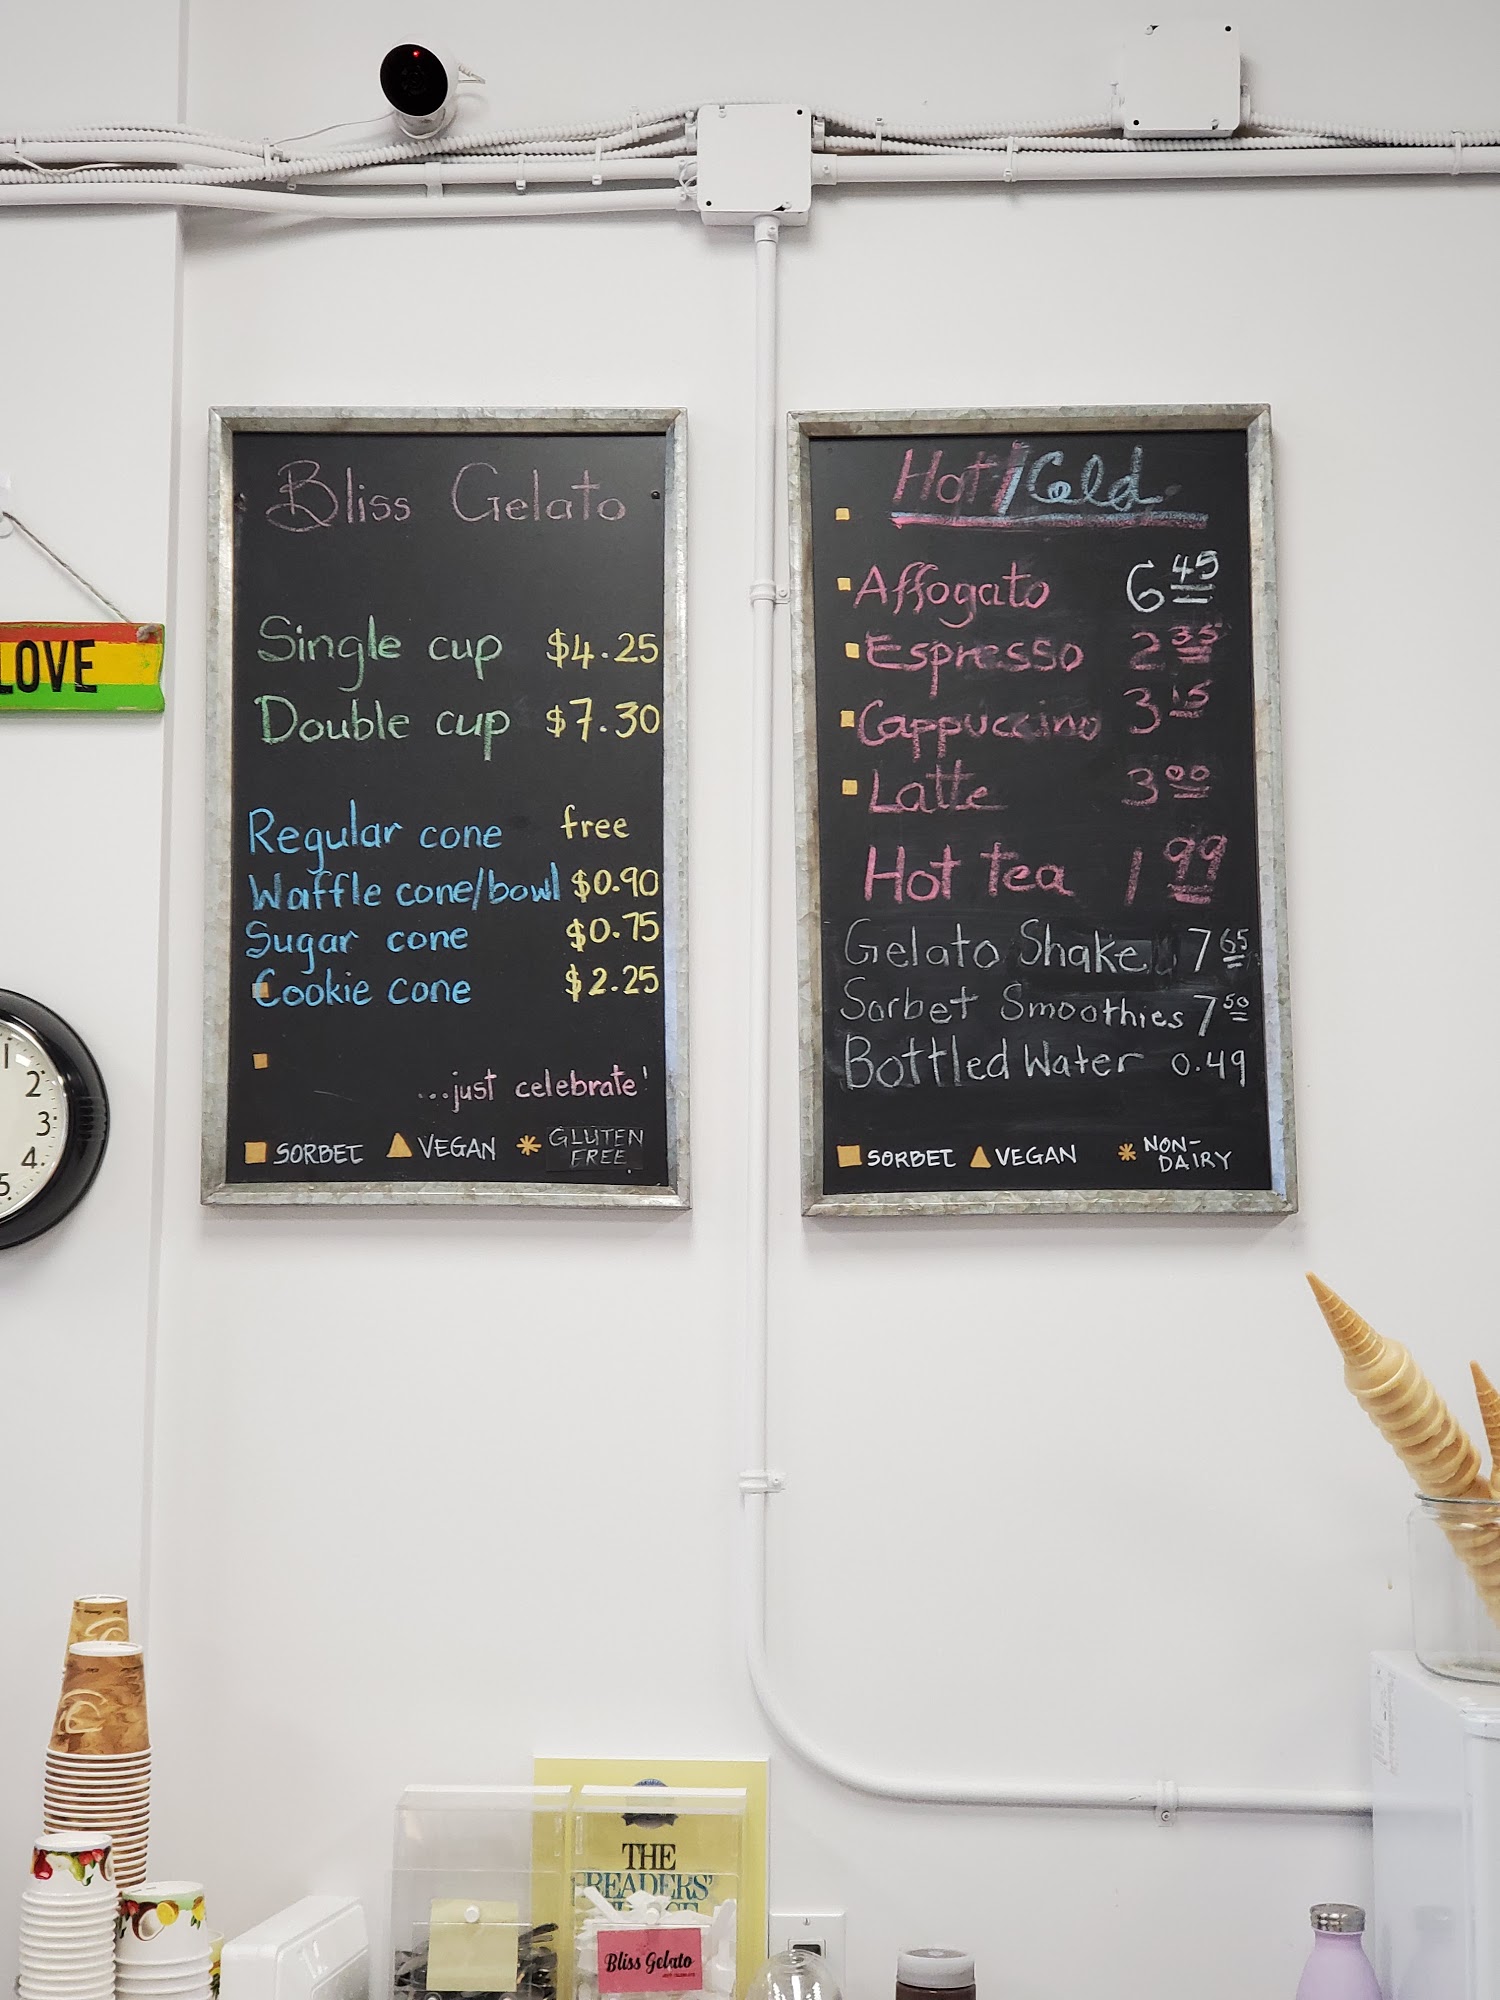 Bliss Gelato
Single cup $4.25
Double cup $7.30
Regular cone free
Waffle cone/bowl $0.90
Sugar cone $0.75
Cookie cone $2.25
...just celebrate!
SORBET VEGAN GLUTEN
FREE
Hot/Cold
Affogato 6 45
Espresso 2 35
Cappuccino 3 15
Latte 3 00
Hot Tea 1 99
Gelato Shake 7 65
Sorbet Smoothies 7 50
Bottled Water 0.49
SORBET VEGAN NON-
DAIRY
LOVE
1
2
3
4
5
THE
READERS'
Bliss Gelato